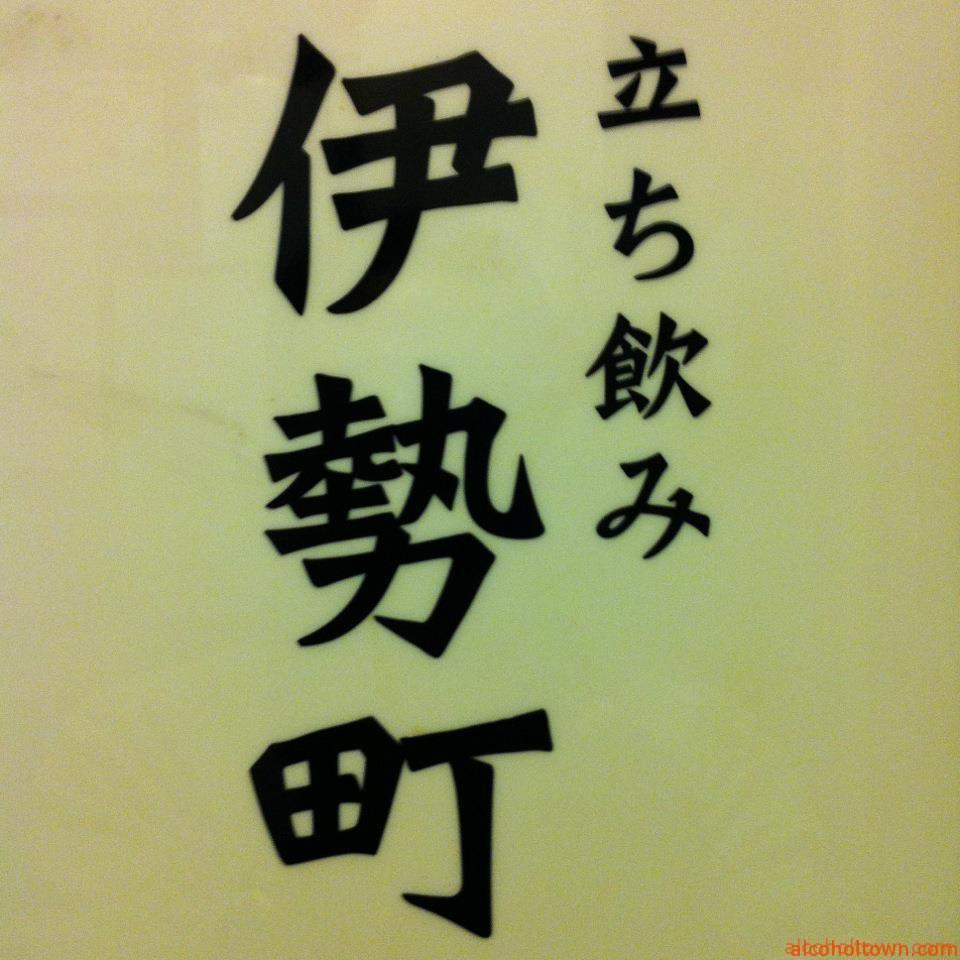 立ち飲み
伊勢町
alcoholtown.com